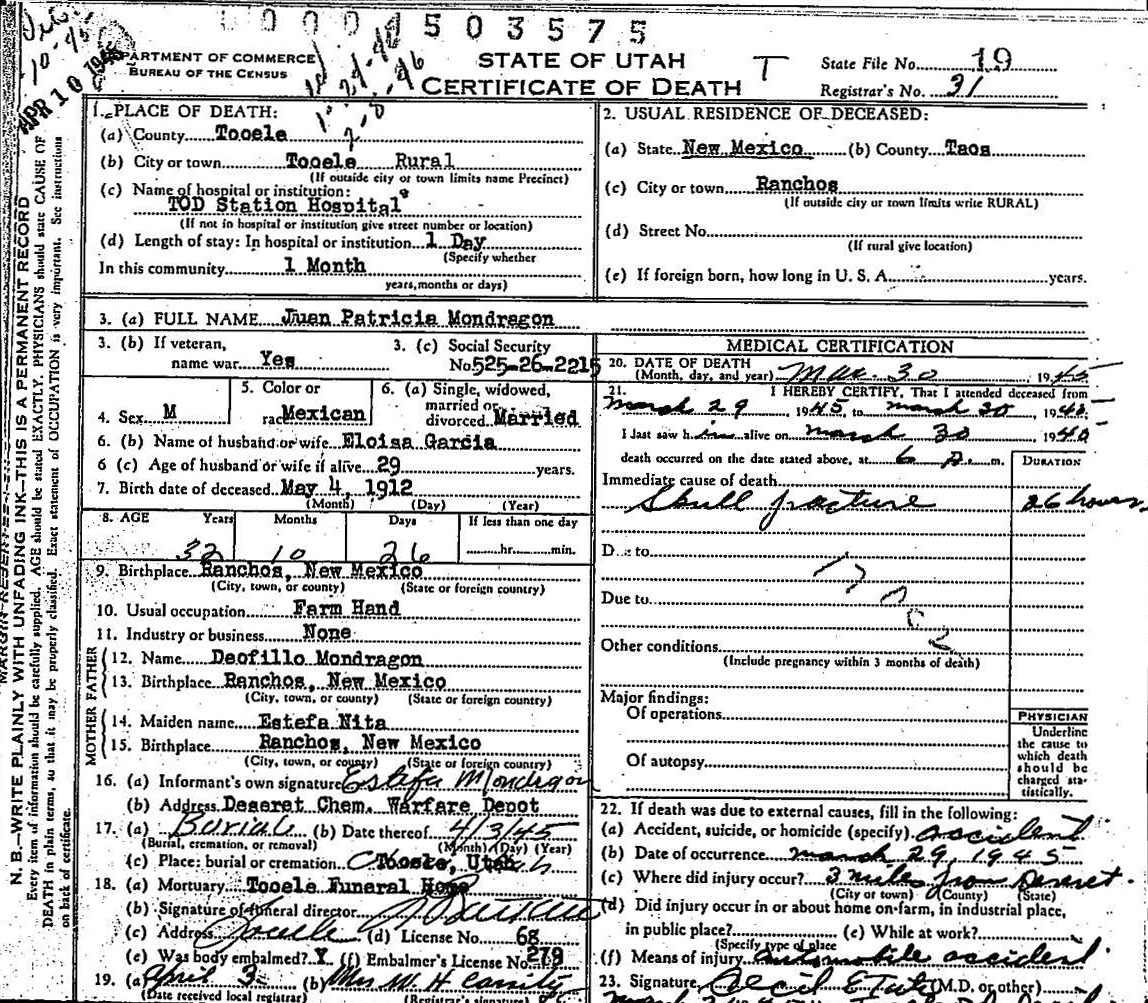 0 0 0 1 5 0 3 5 7 5
APR 10 1945
DEPARTMENT OF COMMERCE
BUREAU OF THE CENSUS
STATE OF UTAH
CERTIFICATE OF DEATH
T
State File No. 19
Registrar's No. 31
MARGIN RESERVED
N. B.—WRITE PLAINLY WITH UNFADING INK—THIS IS A PERMANENT RECORD
Every item of information should be carefully supplied. AGE should be stated EXACTLY. PHYSICIANS should state CAUSE OF
DEATH in plain terms, so that it may be properly classified. Exact statement of OCCUPATION is very important. See instructions
on back of certificate.
1. PLACE OF DEATH:
(a) County Tooele
(b) City or town Tooele Rural
(If outside city or town limits name Precinct)
(c) Name of hospital or institution:
TOD Station Hospital
(If not in hospital or institution give street number or location)
(d) Length of stay: In hospital or institution 1 Day
(Specify whether
In this community 1 Month
years, months or days)
2. USUAL RESIDENCE OF DECEASED:
(a) State New Mexico (b) County Taos
(c) City or town Ranchos
(If outside city or town limits write RURAL)
(d) Street No.
(If rural give location)
(e) If foreign born, how long in U. S. A. years.
3. (a) FULL NAME Juan Patricia Mondragon
3. (b) If veteran,
name war Yes
3. (c) Social Security
No. 525-26-2215
4. Sex M
5. Color or
race Mexican
6. (a) Single, widowed,
married or
divorced Married
6. (b) Name of husband or wife Eloisa Garcia
6 (c) Age of husband or wife if alive 29 years.
7. Birth date of deceased May 4, 1912
(Month) (Day) (Year)
8. AGE Years Months Days If less than one day
32 10 26 hr. min.
9. Birthplace Ranchos, New Mexico
(City, town, or county) (State or foreign country)
10. Usual occupation Farm Hand
11. Industry or business None
FATHER
12. Name Deofillo Mondragon
13. Birthplace Ranchos, New Mexico
(City, town, or county) (State or foreign country)
MOTHER
14. Maiden name Estefa Nita
15. Birthplace Ranchos, New Mexico
(City, town, or county) (State or foreign country)
16. (a) Informant's own signature Estefa Mondragon
(b) Address Deseret Chem. Warfare Depot
17. (a) Burial (b) Date thereof 4/3/45
(Burial, cremation, or removal) (Month) (Day) (Year)
(c) Place: burial or cremation Tooele, Utah
18. (a) Mortuary Tooele Funeral Home
(b) Signature of funeral director
(c) Address Tooele (d) License No. 68
(e) Was body embalmed? Y (f) Embalmer's License No. 279
19. (a) April 3 (b) Mrs W. H. Cassity
(Date received local registrar) (Registrar's signature)
MEDICAL CERTIFICATION
20. DATE OF DEATH
(Month, day, and year) Mar. 30, 1945
21. I HEREBY CERTIFY, That I attended deceased from
March 29 1945, to March 30 1945.
I last saw him alive on March 30 1945
death occurred on the date stated above, at 6 P. m.
DURATION
Immediate cause of death
Skull fracture 26 hours
Due to
Due to
Other conditions
(Include pregnancy within 3 months of death)
Major findings:
Of operations
Of autopsy
PHYSICIAN
Underline
the cause to
which death
should be
charged sta-
tistically.
22. If death was due to external causes, fill in the following:
(a) Accident, suicide, or homicide (specify) accident
(b) Date of occurrence March 29, 1945
(c) Where did injury occur? 3 miles from Deseret
(City or town) (County) (State)
(d) Did injury occur in or about home on farm, in industrial place,
in public place? (e) While at work?
(Specify type of place
(f) Means of injury automobile accident
23. Signature Cecil E Tate (M.D. or other)